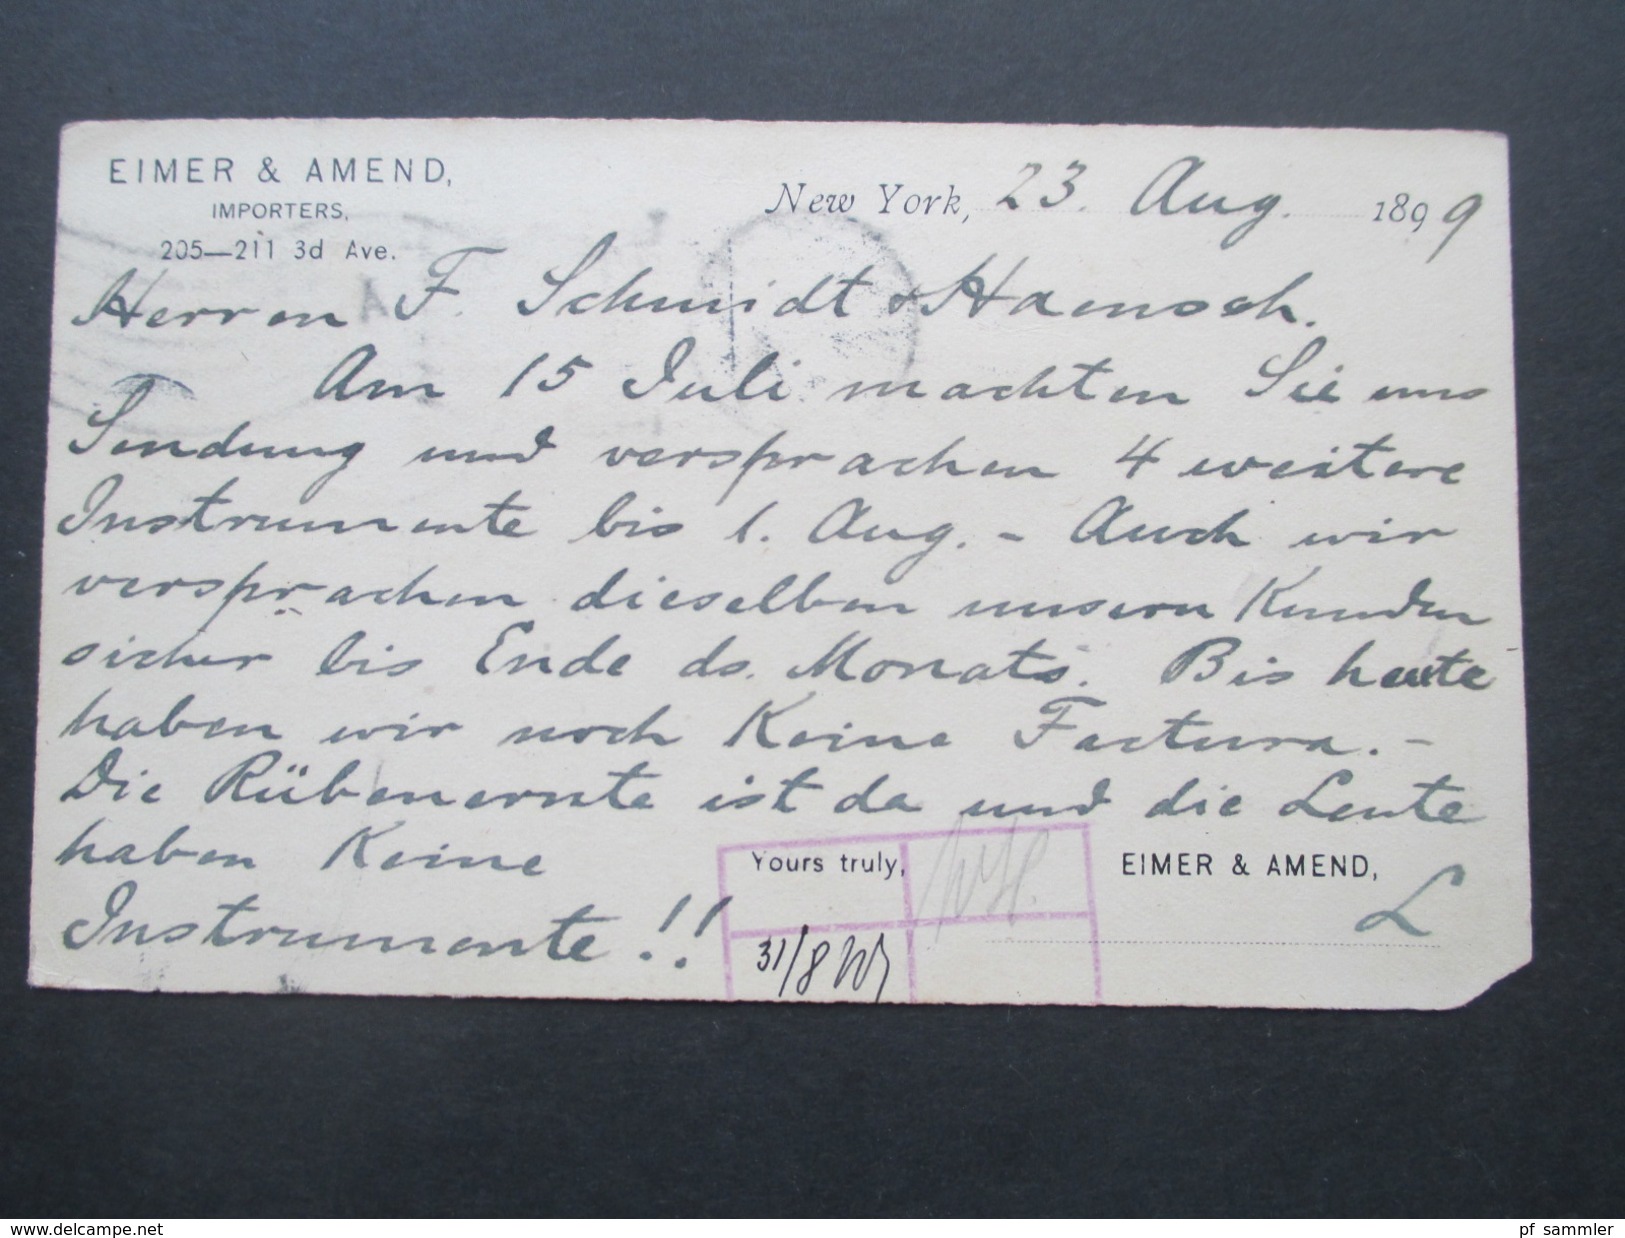 EIMER & AMEND,
IMPORTERS,
205—211 3d Ave.
New York, 23. Aug. 1899
Herren F. Schmidt & Haensch.
Am 15 Juli machten Sie uns
Sendung und versprachen 4 weitere
Instrumente bis 1. Aug. - Auch wir
versprachen dieselben unsern Kunden
sicher bis Ende ds. Monats. Bis heute
haben wir noch Keine Factura. -
Die Rübenernte ist da und die Leute
haben Keine
Instrumente!!
Yours truly,
EIMER & AMEND,
L
31/8
www.delcampe.net
pf_sammler